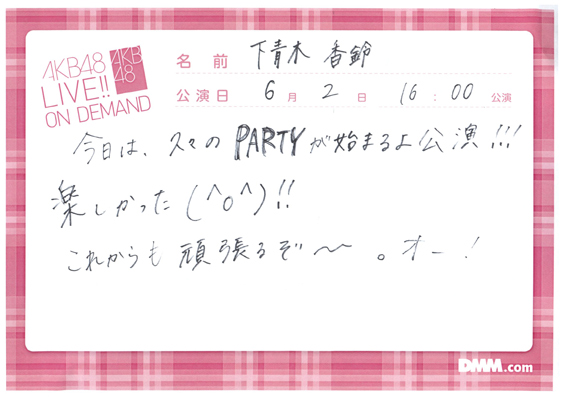 AKB48
LIVE!!
ON DEMAND
AKB
48
名前 下青木 香鈴
公演日 6月 2日 16:00 公演
今日は、久々の PARTYが始まるよ公演!!!
楽しかった(^o^)!!
これからも 頑張るぞ〜〜。オー!
DMM.com